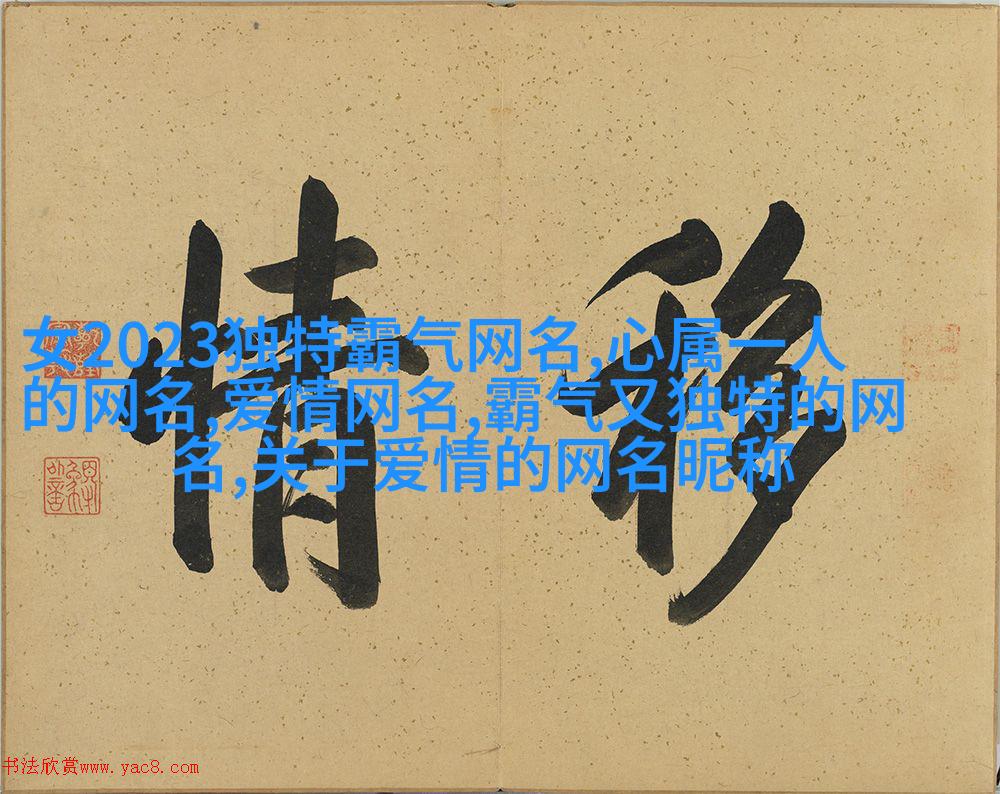 移情
女2023独特霸气网名,心属一人
的网名,爱情网名,霸气又独特的网
名,关于爱情的网名昵称
书法欣赏www.yac8.com